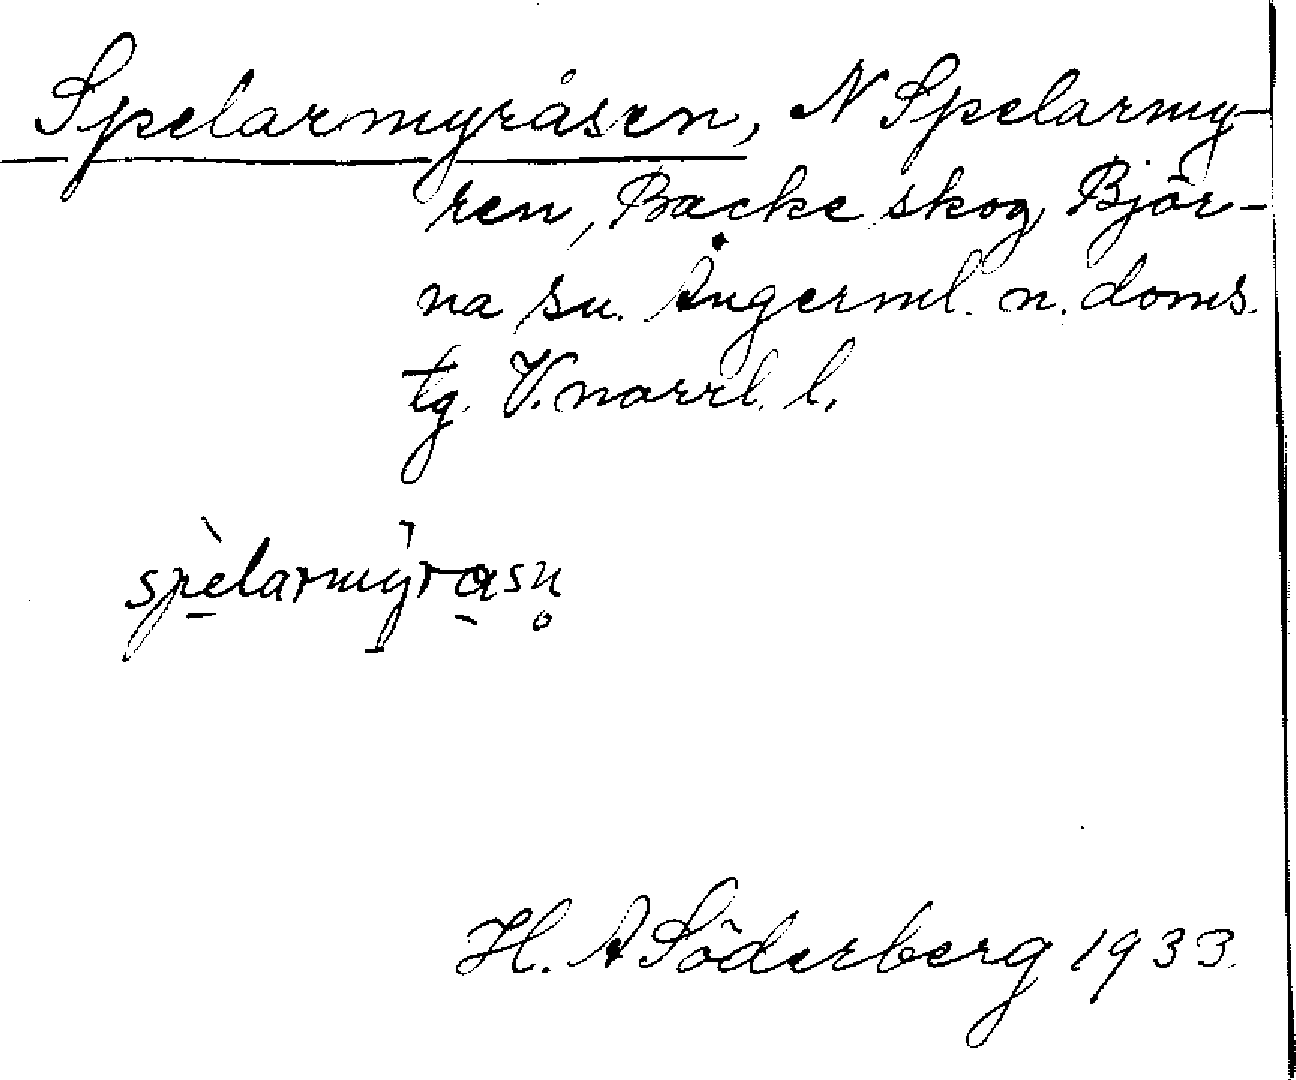 Spelarmyråsen, N Spelarmy-
ren, Backe skog, Björ-
na sn. Ångerml. n. doms.
tg. V. norrl. l.
spèlarmýrasn̥
H. A Söderberg 1933.